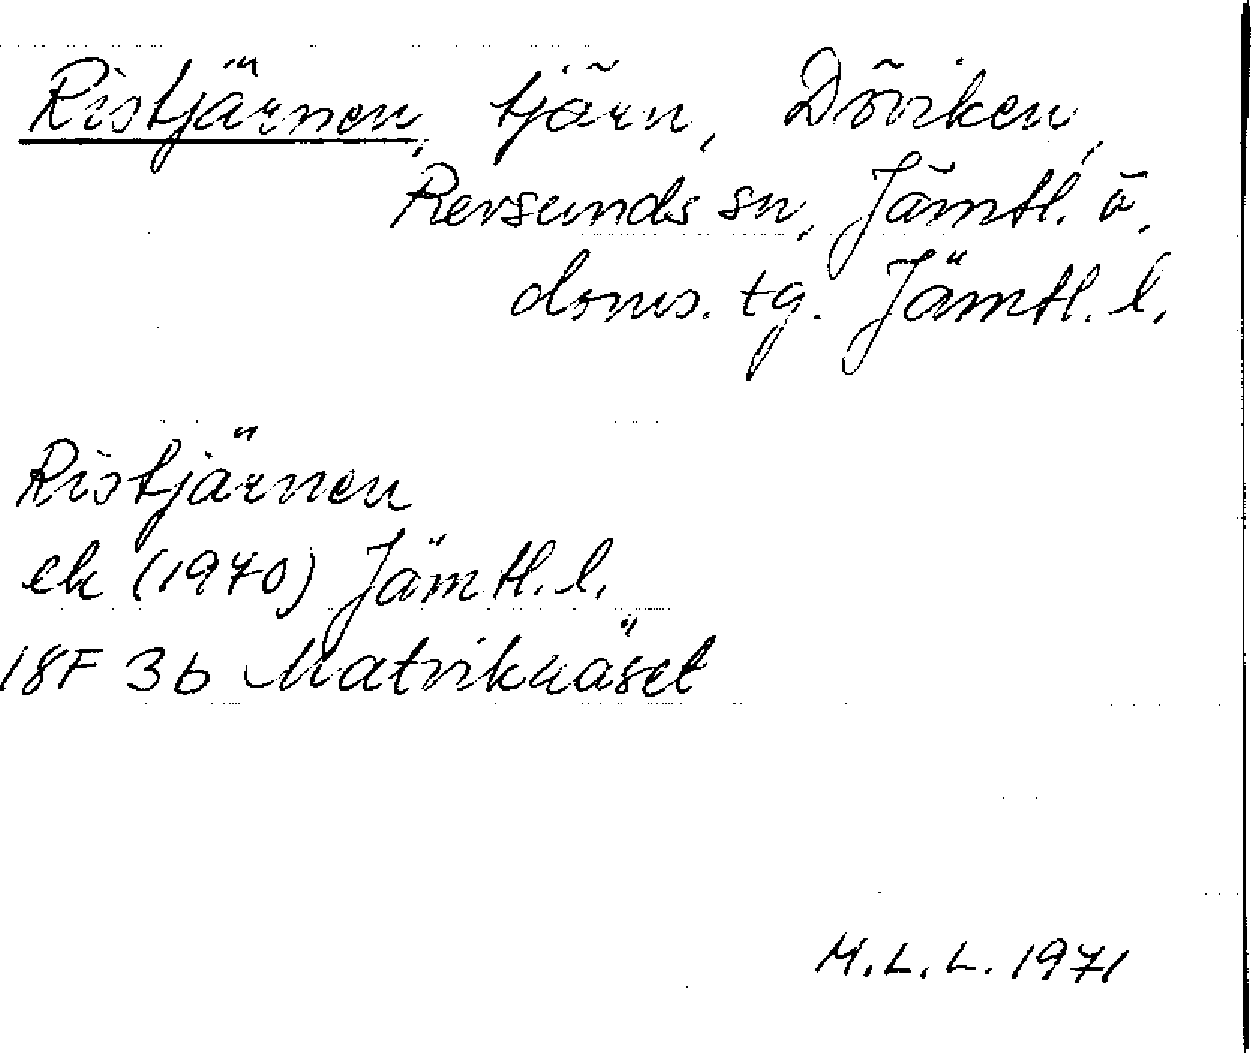 Ristjärnen, tjärn, Döviken,
Revsunds sn, Jämtl. ö.
doms. tg. Jämtl. l.
Ristjärnen
ek (1970) Jämtl. l.
18F 3b Matviknäset
M.L.L. 1971